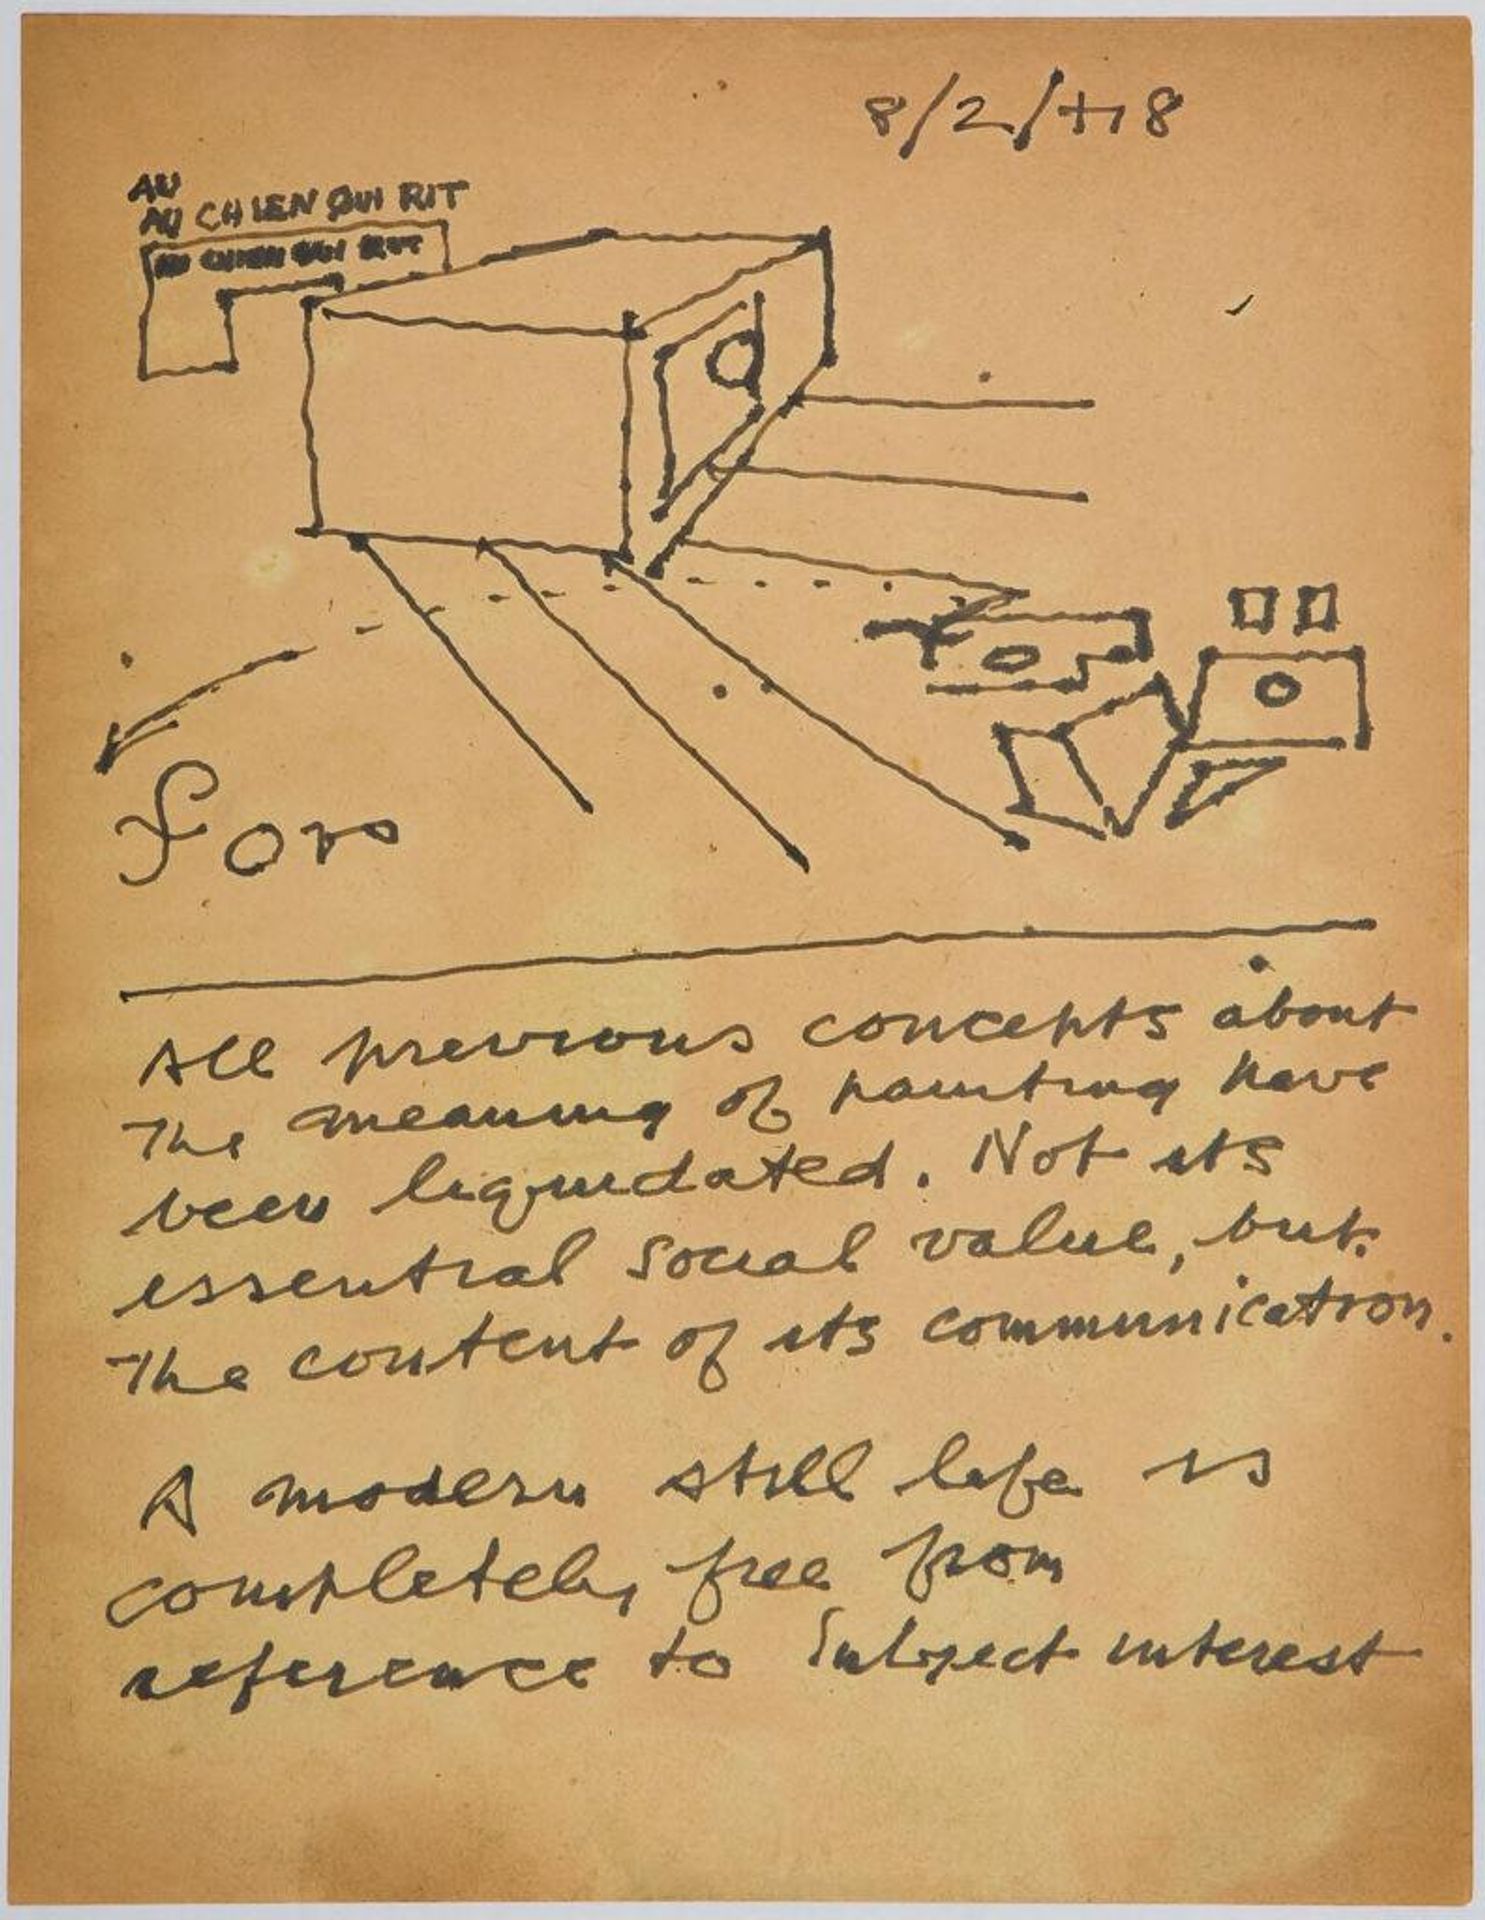 8/2/48
AU
AU CHIEN QUI RIT
AU CHIEN QUI RIT
For
All previous concepts about
The meaning of painting have
been liquidated. Not its
essential social value, but
The content of its communication.
A modern still life is
completely free from
reference to Subject interest